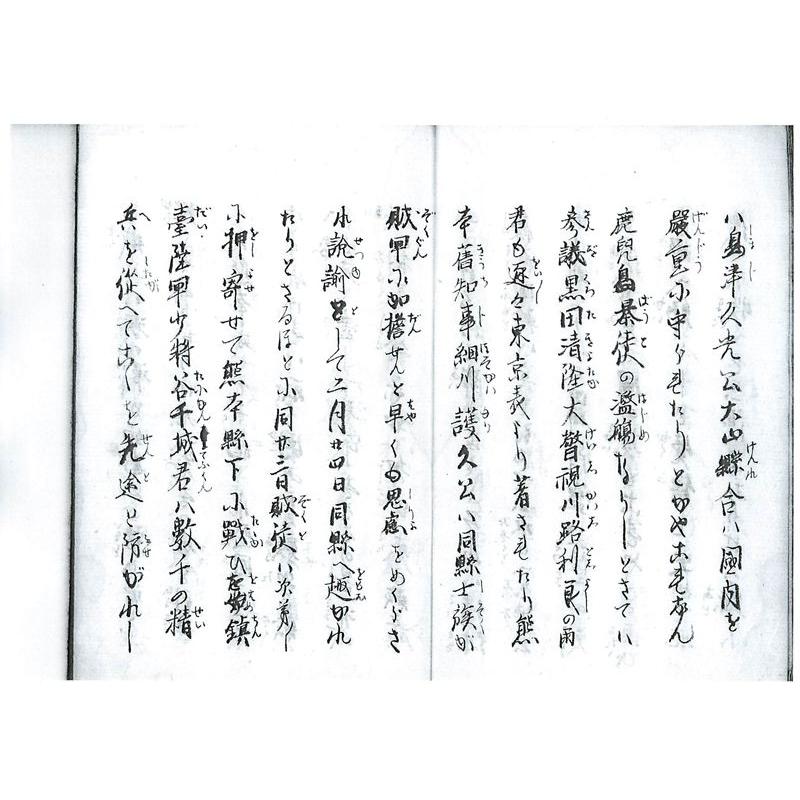 ハ島津久光公大山縣令ハ國内を
嚴重に守られたりとかやこれなん
鹿兒島暴徒の濫觴なりしとさてハ
参議黒田清隆大警視川路利良の両
君も追々東京表より着されたり熊
本舊知事細川護久公ハ同縣士族が
賊軍に加擔せんと早くも思慮をめぐらさ
れ説諭として二月廿四日同縣へ越かれ
たりとさるほとに同廿三日賊徒ハ次第に
に押寄せて熊本縣下に戰ひを鎮
臺陸軍少将谷干城君ハ數千の精
兵を從へてこゝを先途と防がれし